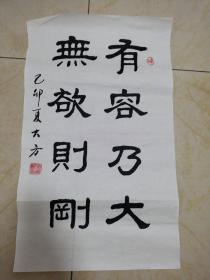 有容乃大
無欲則剛
己卯夏大方